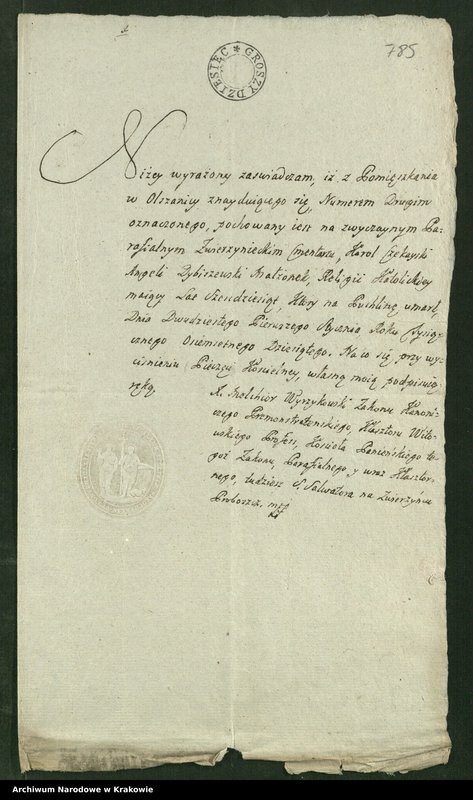 785
GROSZY DZIESIĘC
Niżey wyrażony zaswiadczam, iż z Pomięszkania
w Olszanicy znayduiącego się, Numerem Drugim
oznaczonego, pochowany iest na zwyczaynym Pa-
rafialnym Zwierzynieckim Cmentarzu, Karol
Angeli Dybiszewski Małżonek, Religii Katolickiey
maiący Lat Szesdziesiąt, Który na Puchlinę umarł,
Dnia Dwudziestego Pierwszego Stycznia Roku Tysiąc-
cznego Osiemsetnego Dziesiątego. Na co się przy wy-
ciśnieniu Pieczęci Kościelney, własną moią podpisuię
ręką.
X. Melchior Wyrzykowski Zakonu Kanoni-
czego Premonstrateńskiego, Klasztoru Wito-
wskiego Profess, Kościoła Panieńskiego te-
goż Zakonu, Parafialnego y wraz Klasztor-
nego, tudziesz S. Salwatora na Zwierzyńcu
Proboszcz. mpp
Archiwum Narodowe w Krakowie